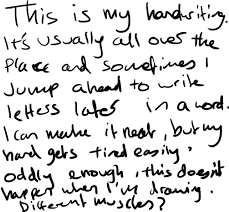 This is my handwriting.
It's usually all over the
place and sometimes I
jump ahead to write
letters later in a word.
I can make it neat, but my
hand gets tired easily,
oddly enough, this doesn't
happen when I'm drawing.
Different muscles?